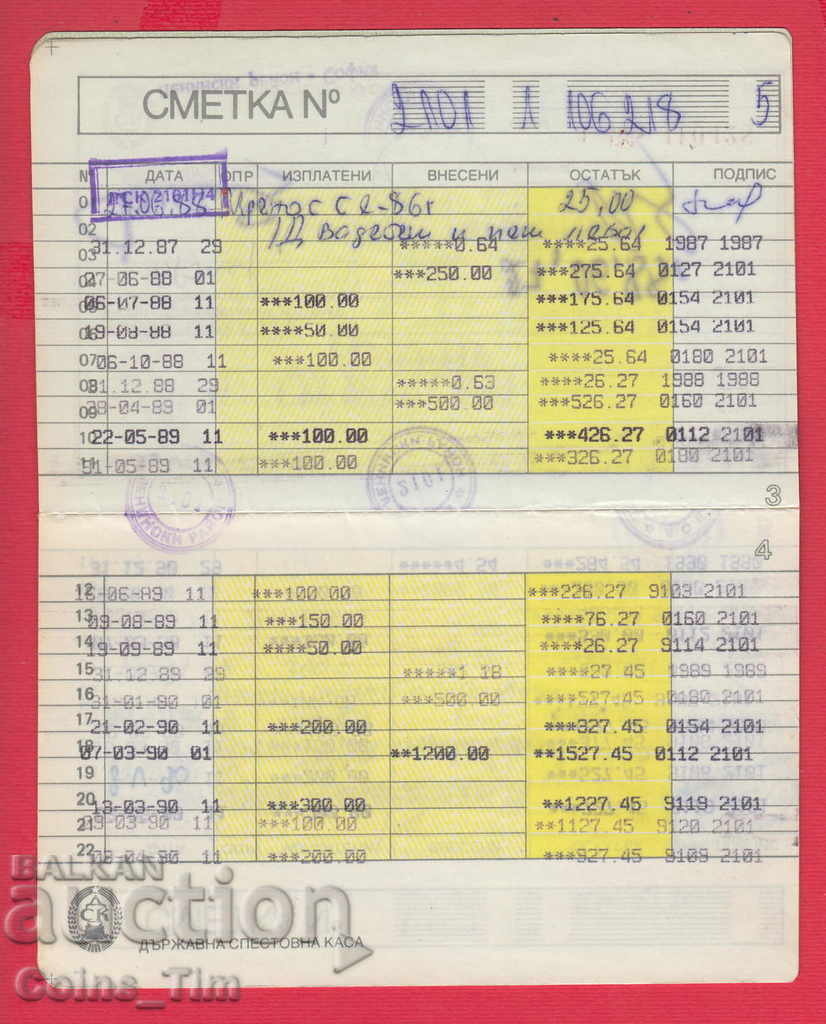 СМЕТКА Nº 2101 1 106218 5
Nº ДАТА ОПР ИЗПЛАТЕНИ ВНЕСЕНИ ОСТАТЪК ПОДПИС
01 27.06.88 25,00
02
03 31.12.87 29 *****0.64 ****25.64 1987 1987
04 27-06-88 01 ***250.00 ***275.64 0127 2101
05 06-07-88 11 ***100.00 ***175.64 0154 2101
06 19-08-88 11 ****50.00 ***125.64 0154 2101
07 06-10-88 11 ***100.00 ****25.64 0180 2101
08 31.12.88 29 *****0.63 ****26.27 1988 1988
09 28-04-89 01 ***500.00 ***526.27 0160 2101
10 22-05-89 11 ***100.00 ***426.27 0112 2101
11 31-05-89 11 ***100.00 ***326.27 0180 2101
3
4
12 16-06-89 11 ***100.00 ***226.27 9103 2101
13 09-08-89 11 ***150.00 ****76.27 0160 2101
14 19-09-89 11 ****50.00 ****26.27 9114 2101
15 31.12.89 29 *****1.18 ****27.45 1989 1989
16 31-01-90 01 ***500.00 ***527.45 0180 2101
17 21-02-90 11 ***200.00 ***327.45 0154 2101
18 07-03-90 01 **1200.00 **1527.45 0112 2101
19
20 13-03-90 11 ***300.00 **1227.45 9119 2101
21 29-03-90 11 ***100.00 **1127.45 9120 2101
22 03-04-90 11 ***200.00 ***927.45 9109 2101
BALKAN
auction
ДСК ДЪРЖАВНА СПЕСТОВНА КАСА
Coins_Tim